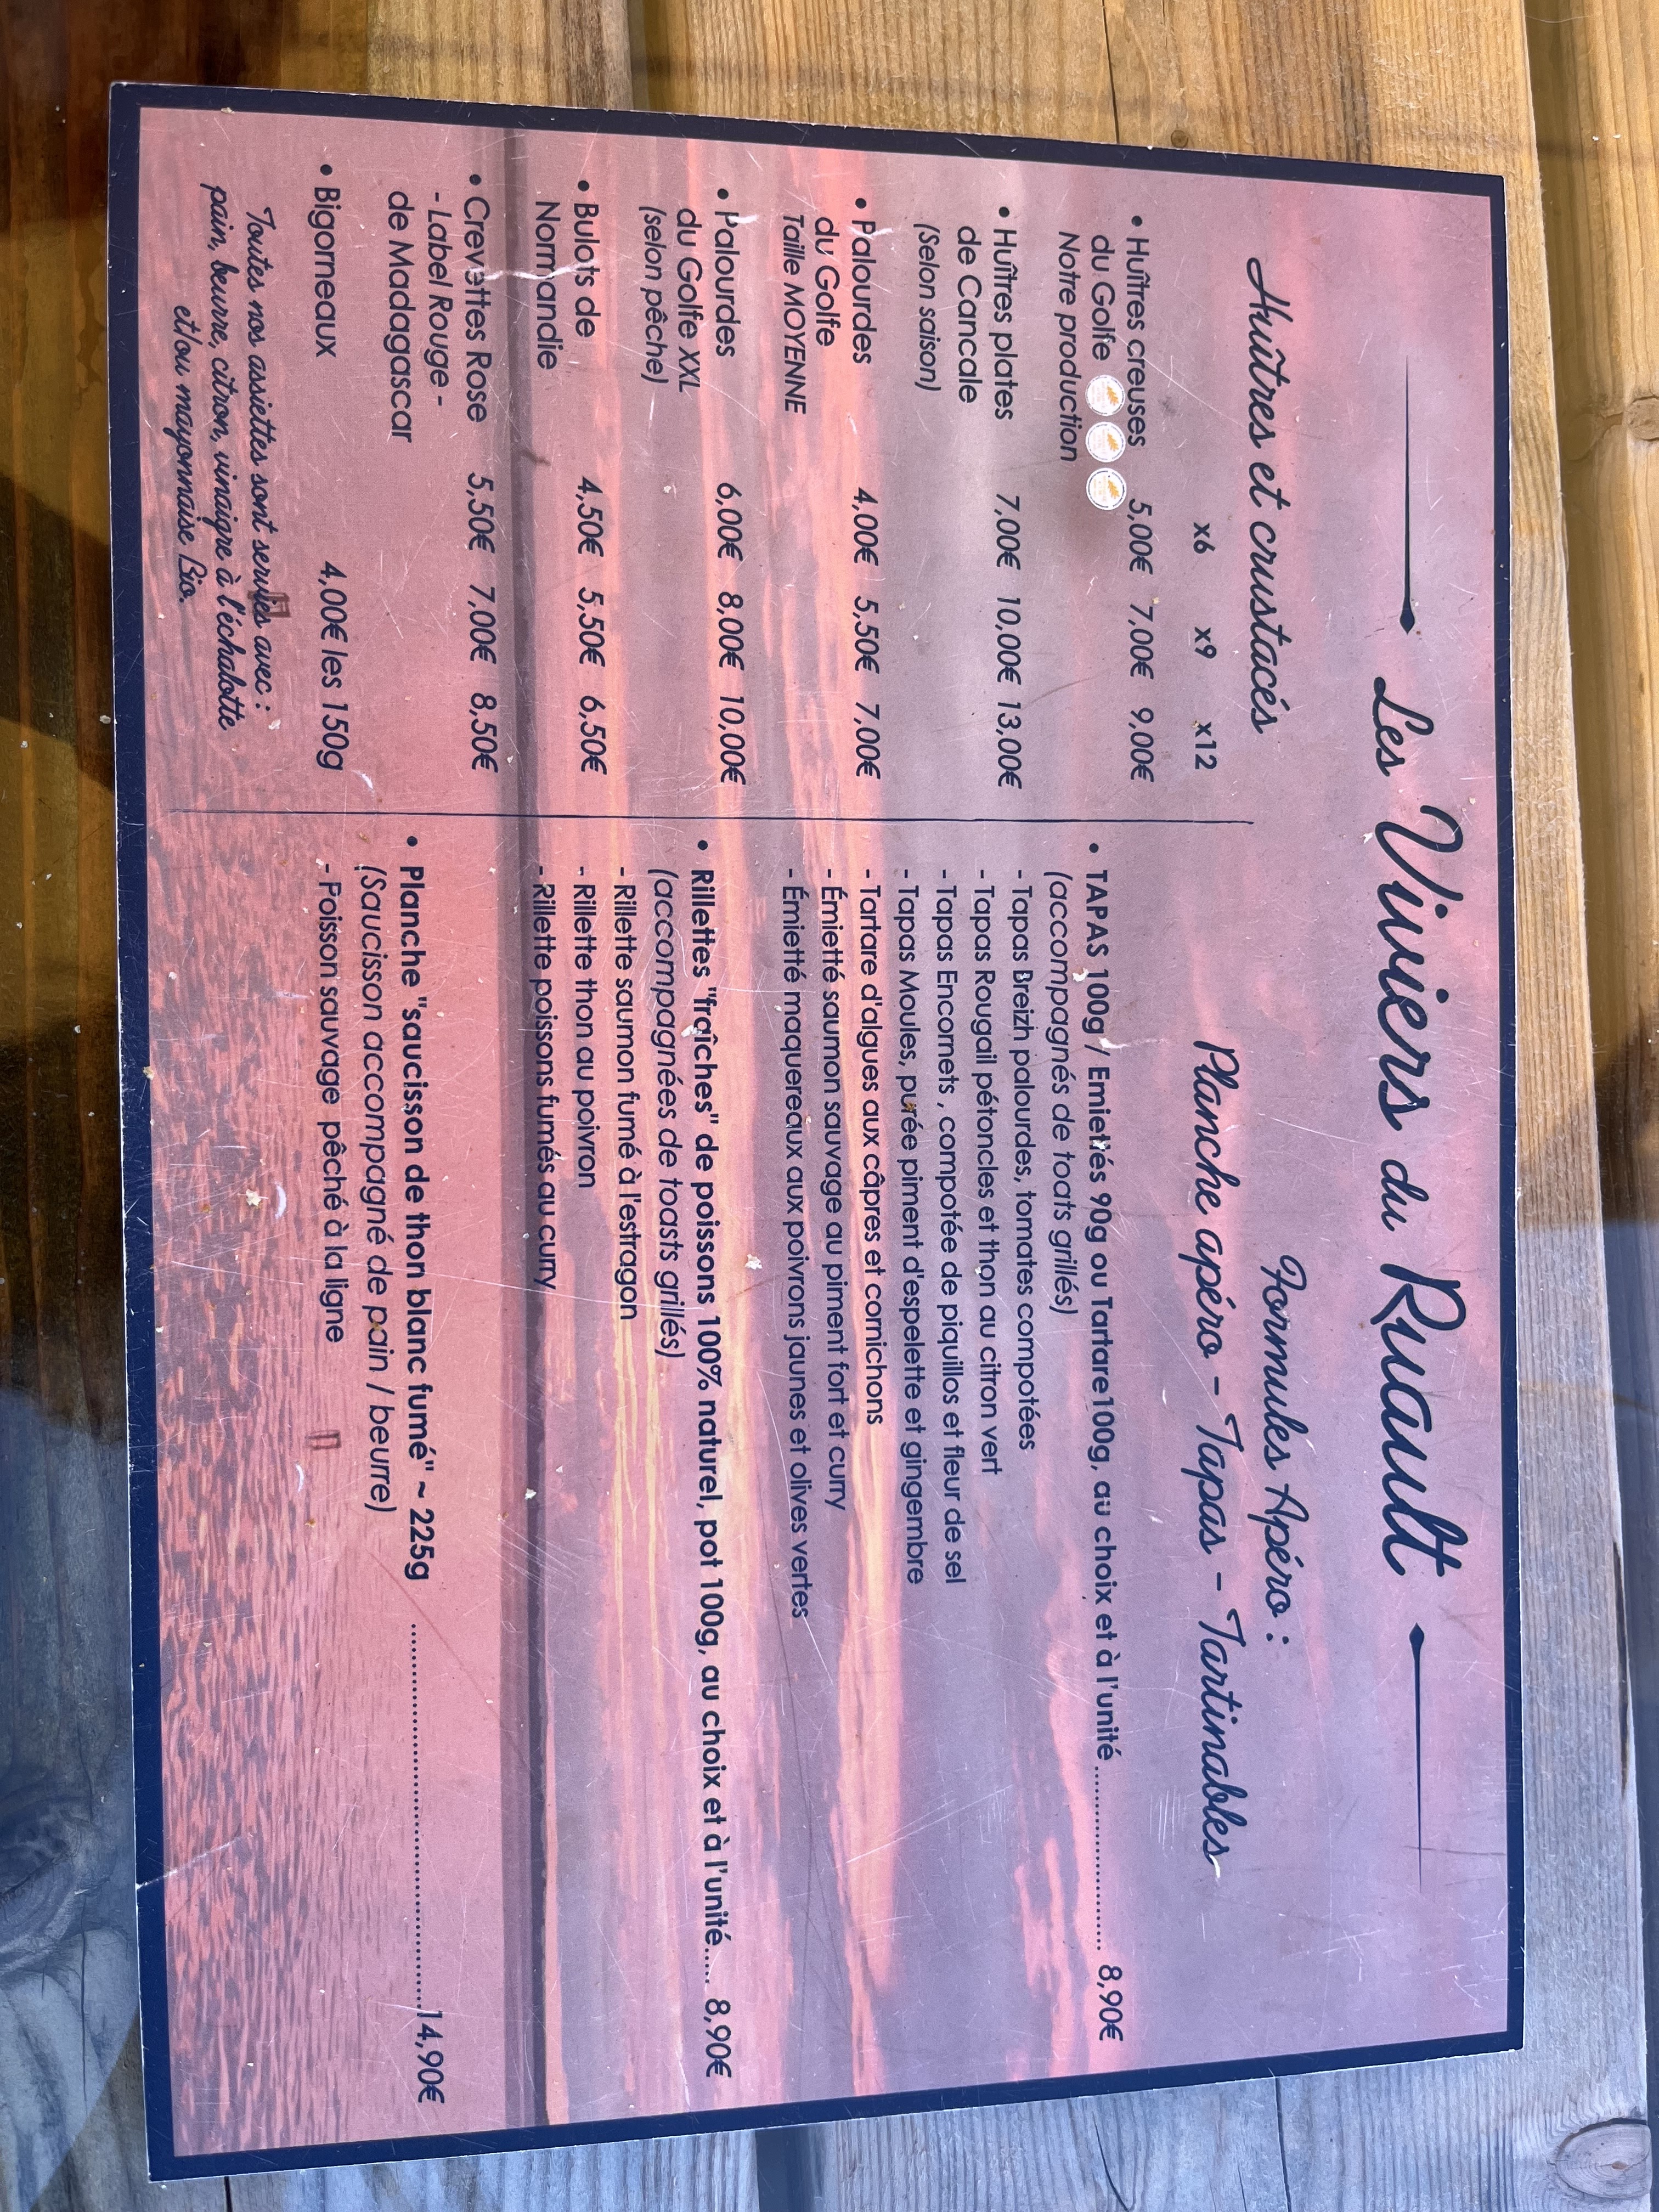 Les Viviers du Ruault
Huîtres et crustacés
x6 x9 x12
• Huîtres creuses 5,00€ 7,00€ 9,00€
du Golfe
Notre production
• Huîtres plates 7,00€ 10,00€ 13,00€
de Cancale
(Selon saison)
• Palourdes 4,00€ 5,50€ 7,00€
du Golfe
Taille MOYENNE
• Palourdes 6,00€ 8,00€ 10,00€
du Golfe XXL
(selon pêche)
• Bulots de 4,50€ 5,50€ 6,50€
Normandie
• Crevettes Rose 5,50€ 7,00€ 8,50€
- Label Rouge -
de Madagascar
• Bigorneaux 4,00€ les 150g
Toutes nos assiettes sont servies avec :
pain, beurre, citron, vinaigre à l'échalotte
et/ou mayonnaise Bio.
Formules Apéro :
Planche apéro - Tapas - Tartinables
• TAPAS 100g / Emiettés 90g ou Tartare100g, au choix et à l'unité .......................... 8,90€
(accompagnés de toats grillés)
- Tapas Breizh palourdes, tomates compotées
- Tapas Rougail pétoncles et thon au citron vert
- Tapas Encornets , compotée de piquillos et fleur de sel
- Tapas Moules, purée piment d'espelette et gingembre
- Tartare d'algues aux câpres et cornichons
- Émietté saumon sauvage au piment fort et curry
- Émietté maquereaux aux poivrons jaunes et olives vertes
• Rillettes "fraîches" de poissons 100% naturel, pot 100g, au choix et à l'unité..... 8,90€
(accompagnées de toasts grillés)
- Rillette saumon fumé à l'estragon
- Rillette thon au poivron
- Rillette poissons fumés au curry
• Planche "saucisson de thon blanc fumé" ~ 225g ......................................................14,90€
(Saucisson accompagné de pain / beurre)
- Poisson sauvage pêché à la ligne